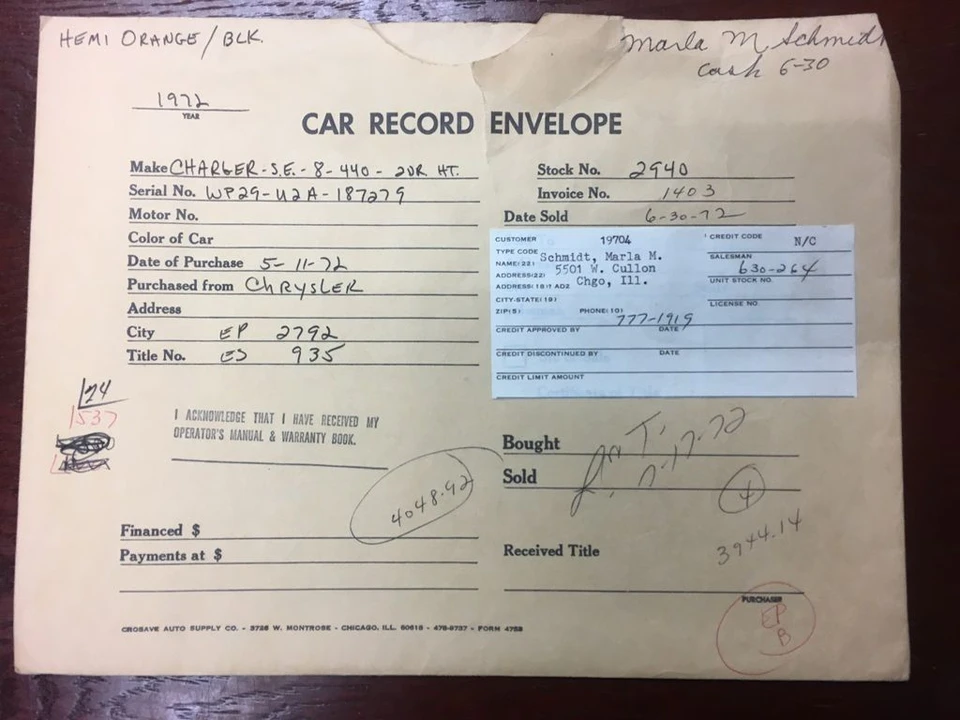 HEMI ORANGE/BLK.
Marla M. Schmidt
Cash 6-30
1972
YEAR
CAR RECORD ENVELOPE
Make CHARGER-S.E.-8-440-2DR. HT.
Serial No. WP29-U2A-187279
Motor No.
Color of Car
Date of Purchase 5-11-72
Purchased from CHRYSLER
Address
City EP 2792
Title No. ES 935
Stock No. 2940
Invoice No. 1403
Date Sold 6-30-72
CUSTOMER 19704
TYPE CODE
NAME(22) Schmidt, Marla M.
ADDRESS(22) 5501 W. Cullon
ADDRESS(18)? AD2 Chgo, Ill.
CITY-STATE(19)
ZIP(5) PHONE(10) 777-1919
CREDIT APPROVED BY DATE
CREDIT DISCONTINUED BY DATE
CREDIT LIMIT AMOUNT
CREDIT CODE N/C
SALESMAN
630-264
UNIT STOCK NO.
LICENSE NO.
24
1537
I ACKNOWLEDGE THAT I HAVE RECEIVED MY
OPERATOR'S MANUAL & WARRANTY BOOK.
4048.92
Financed $
Payments at $
Bought
Sold
4
3944.14
Received Title
PURCHASER
EP
B
CROSAVE AUTO SUPPLY CO. - 3726 W. MONTROSE - CHICAGO, ILL. 60618 - 478-9737 - FORM 4752